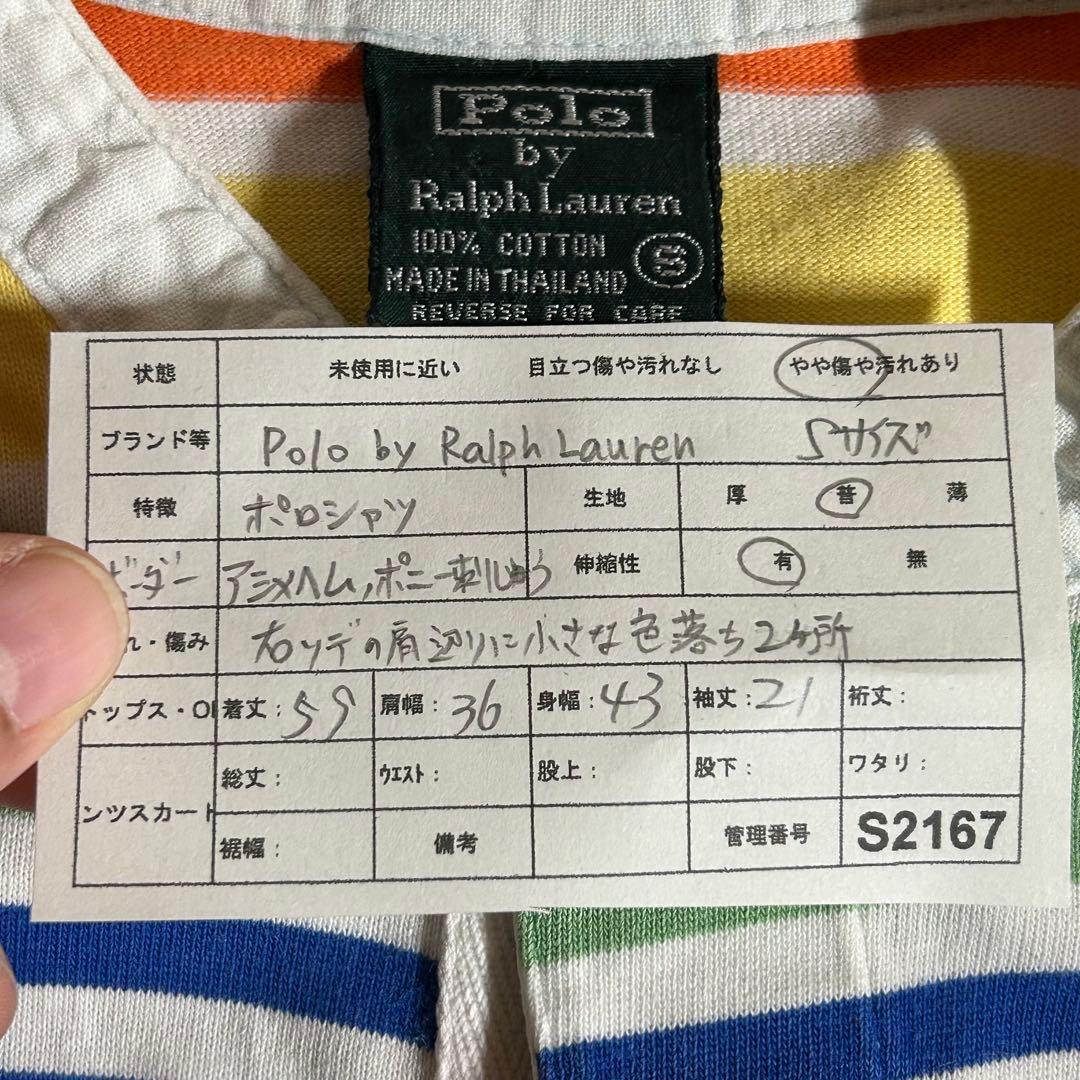 Polo
by
Ralph Lauren
100% COTTON
MADE IN THAILAND
S
REVERSE FOR CARE
状態 未使用に近い 目立つ傷や汚れなし やや傷や汚れあり
ブランド等 Polo by Ralph Lauren Sサイズ
特徴 ポロシャツ 生地 厚 普 薄
ボーダー アシメヘム,ポニー刺しゅう 伸縮性 有 無
れ・傷み 右ソデの肩辺りに小さな色落ち2ヶ所
トップス・O 着丈:59 肩幅:36 身幅:43 袖丈:21 裄丈:
総丈: ウエスト: 股上: 股下: ワタリ:
ンツスカート
裾幅: 備考 管理番号 S2167